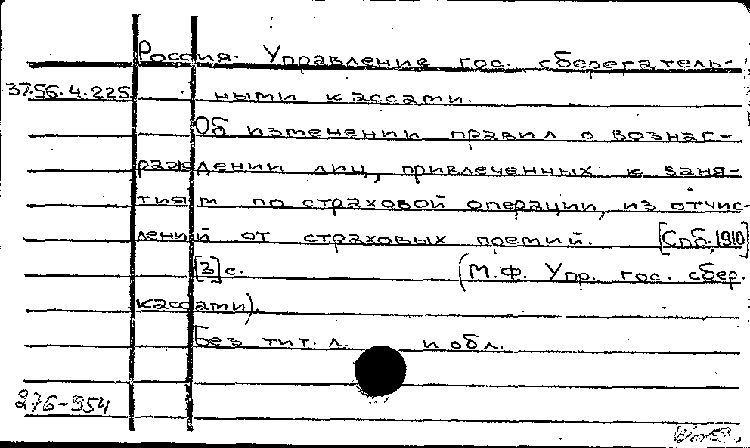 Россия. Управление гос. сберегатель-
37.56.4.225 ными кассами.
Об изменении правил о вознаг-
раждении лиц, привлеченных к заня-
тиям по страховой операции, из отчис-
лений от страховых премий. [Спб, 1910]
[2] с. (М.Ф. Упр. гос. сбер.
кассами).
Без тит. л. и обл.
276-954